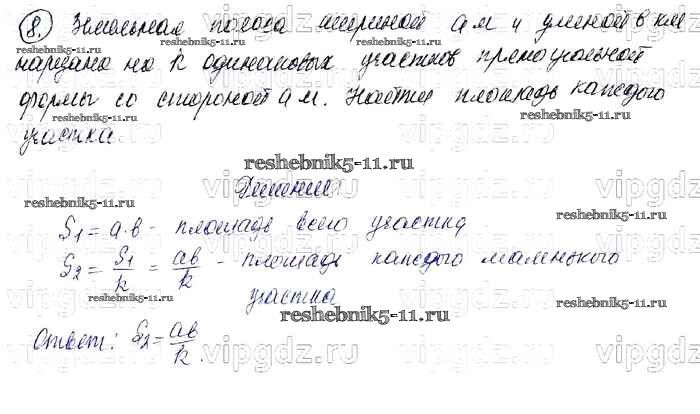 8. Земельная полоса шириной а м и длиной в км
нарезана на k одинаковых участков прямоугольной
формы со стороной а м. Найти площадь каждого
участка
reshebnik5-11.ru
reshebnik5-11.ru
reshebnik5-11.ru
vipgdz.ru vipgdz.ru vipgdz.ru
reshebnik5-11.ru
Решение
vipgdz.ru vipgdz.ru vipgdz.ru
reshebnik5-11.ru
reshebnik5-11.ru
S1 = a·в - площадь всего участка
S2 = S1/k = aв/k - площадь каждого маленького
vipgdz.ru vipgdz.ru vipgdz.ru
reshebnik5-11.ru
reshebnik5-11.ru
участка
reshebnik5-11.ru
Ответ: S2 = aв/k.
vipgdz.ru vipgdz.ru vipgdz.ru